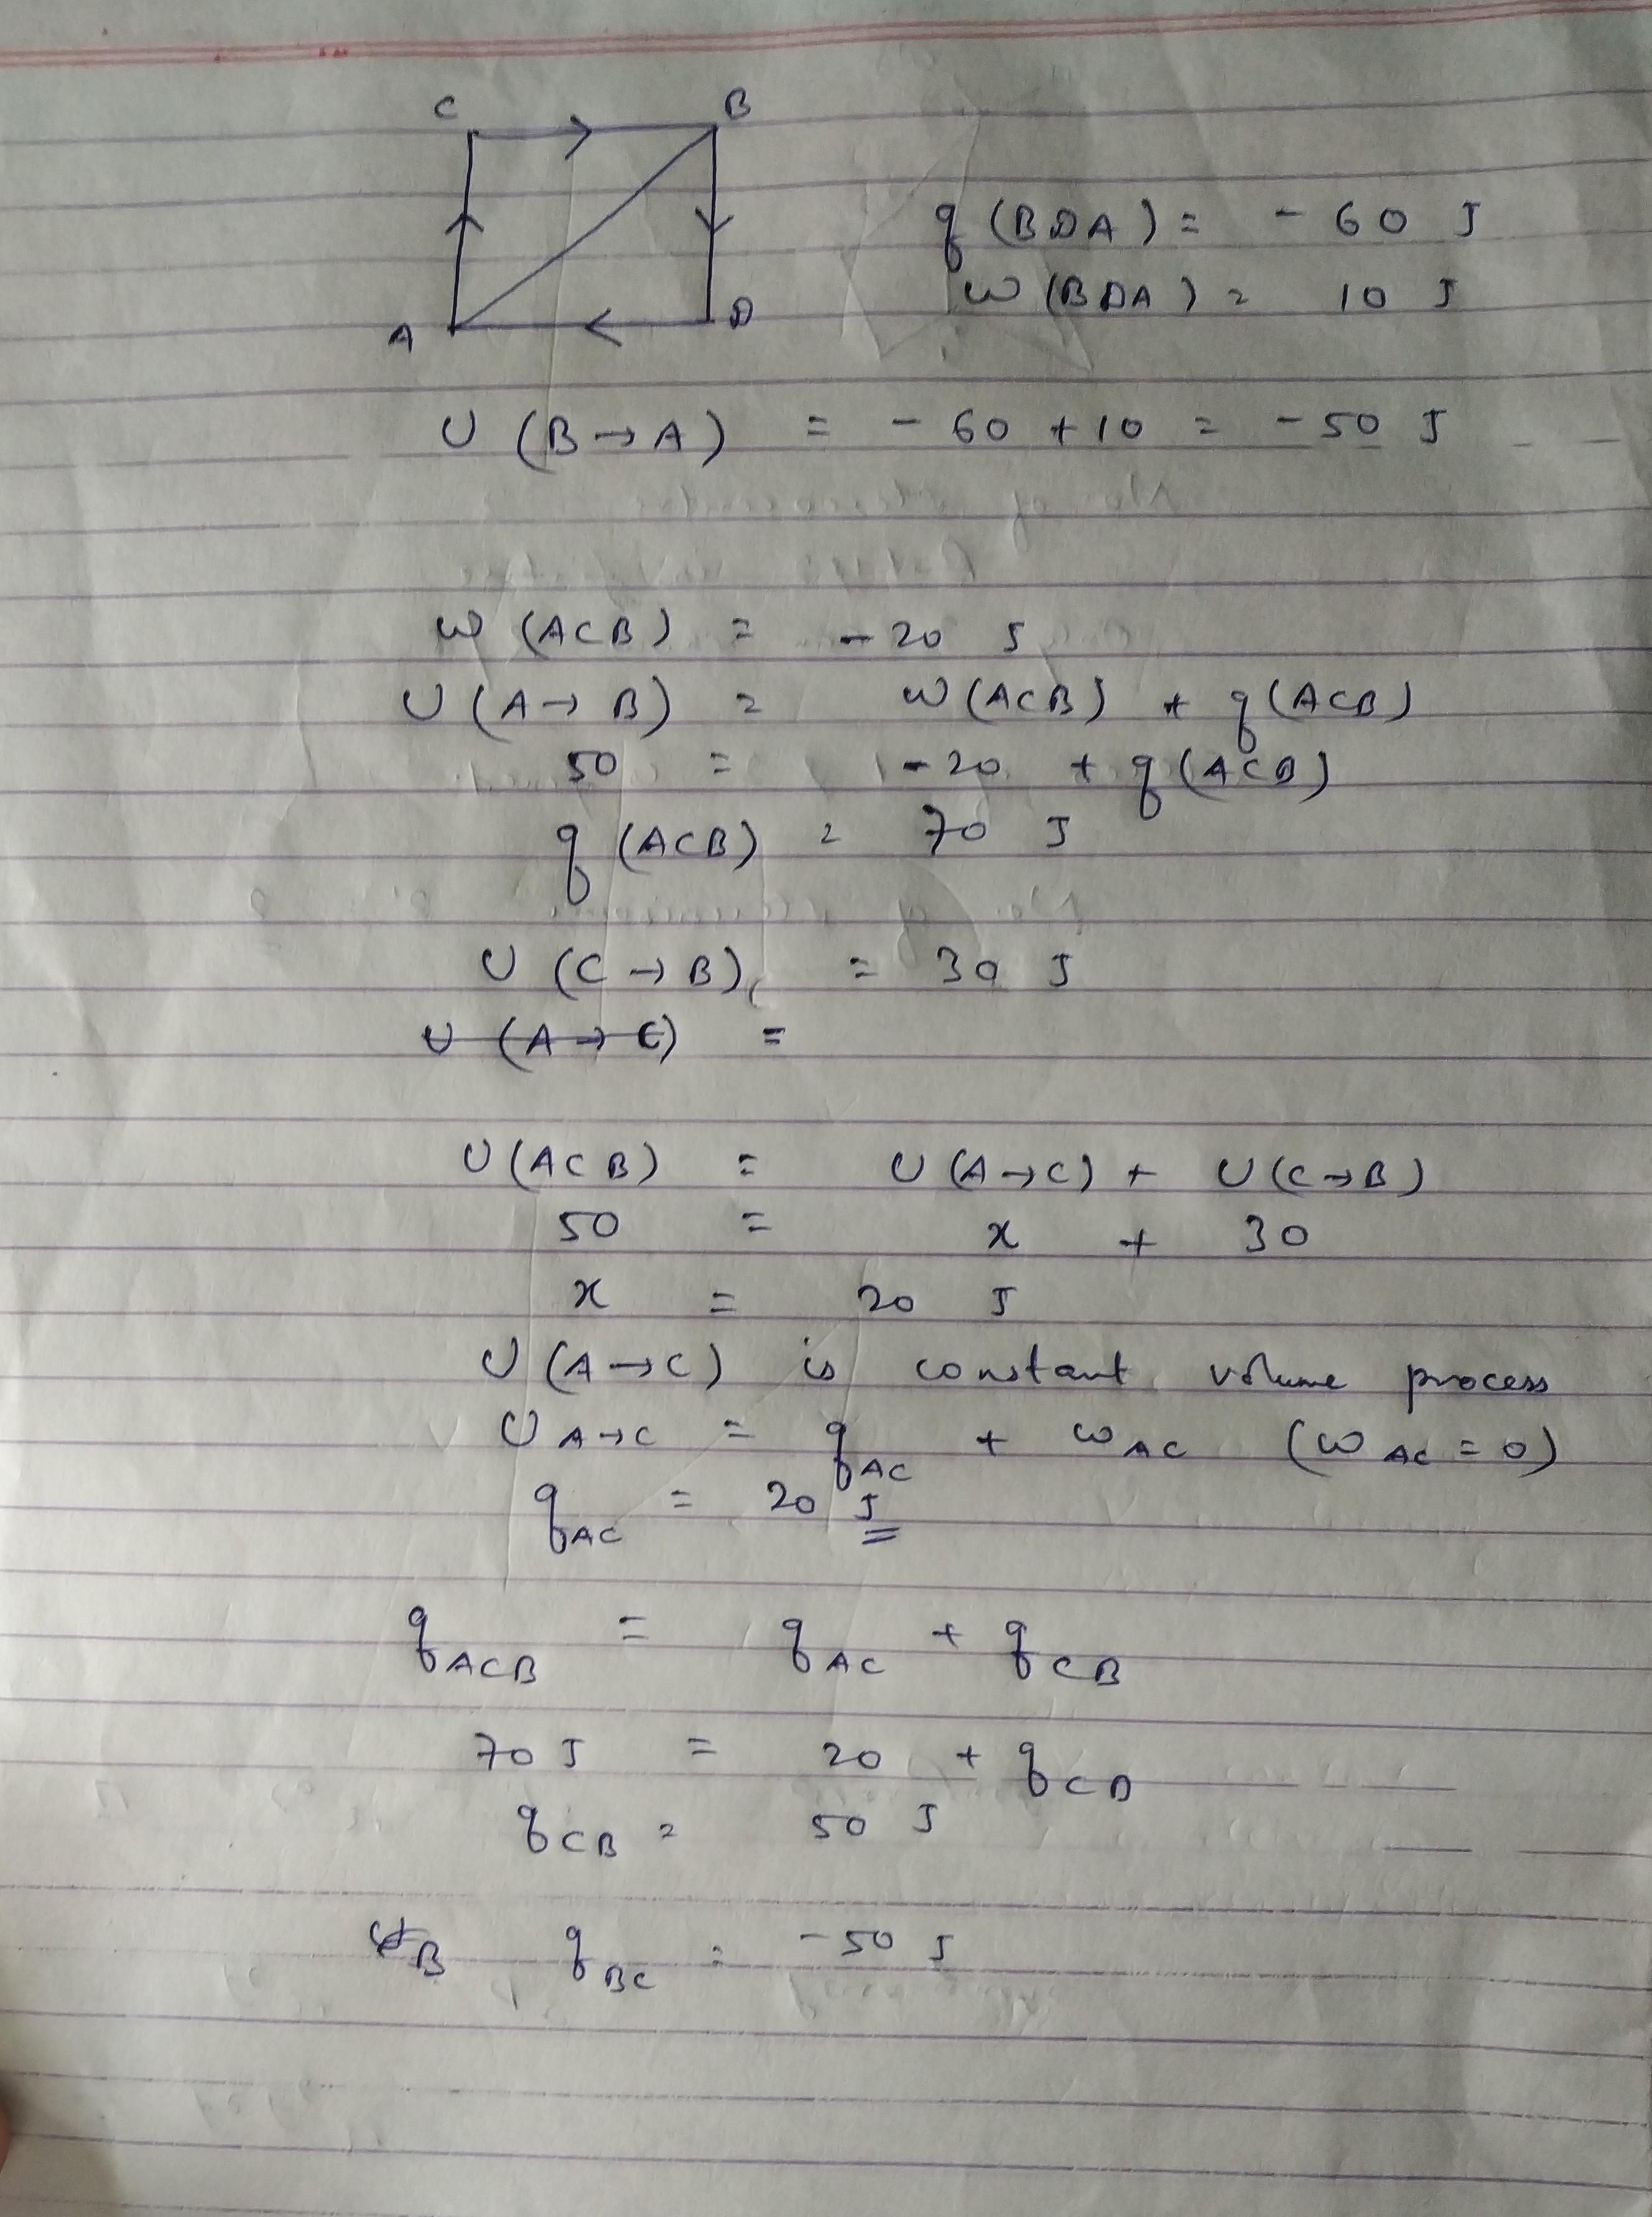 C B
q (BDA) = - 60 J
w (BDA) = 10 J
A D
U (B → A) = - 60 + 10 = - 50 J
w (ACB) = - 20 J
U (A → B) = w (ACB) + q (ACB)
50 = - 20 + q (ACB)
q (ACB) = 70 J
U (C → B) = 30 J
U (A → C) =
U (ACB) = U (A → C) + U (C → B)
50 = x + 30
x = 20 J
U (A → C) is constant volume process
U A→C = q AC + w AC (w AC = 0)
q AC = 20 J
q ACB = q AC + q CB
70 J = 20 + q CB
q CB = 50 J
q BC = - 50 J